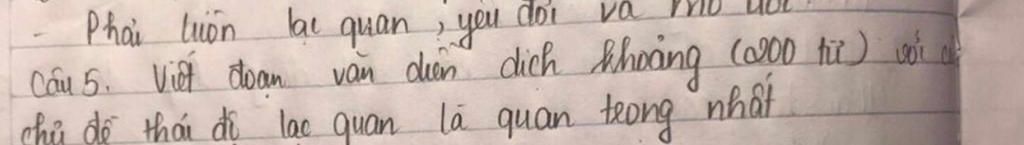 - Phải luôn lạc quan, yêu đời và mơ ước
Câu 5. Viết đoạn văn diễn dịch khoảng (200 từ) với
chủ đề thái độ lạc quan là quan trọng nhất